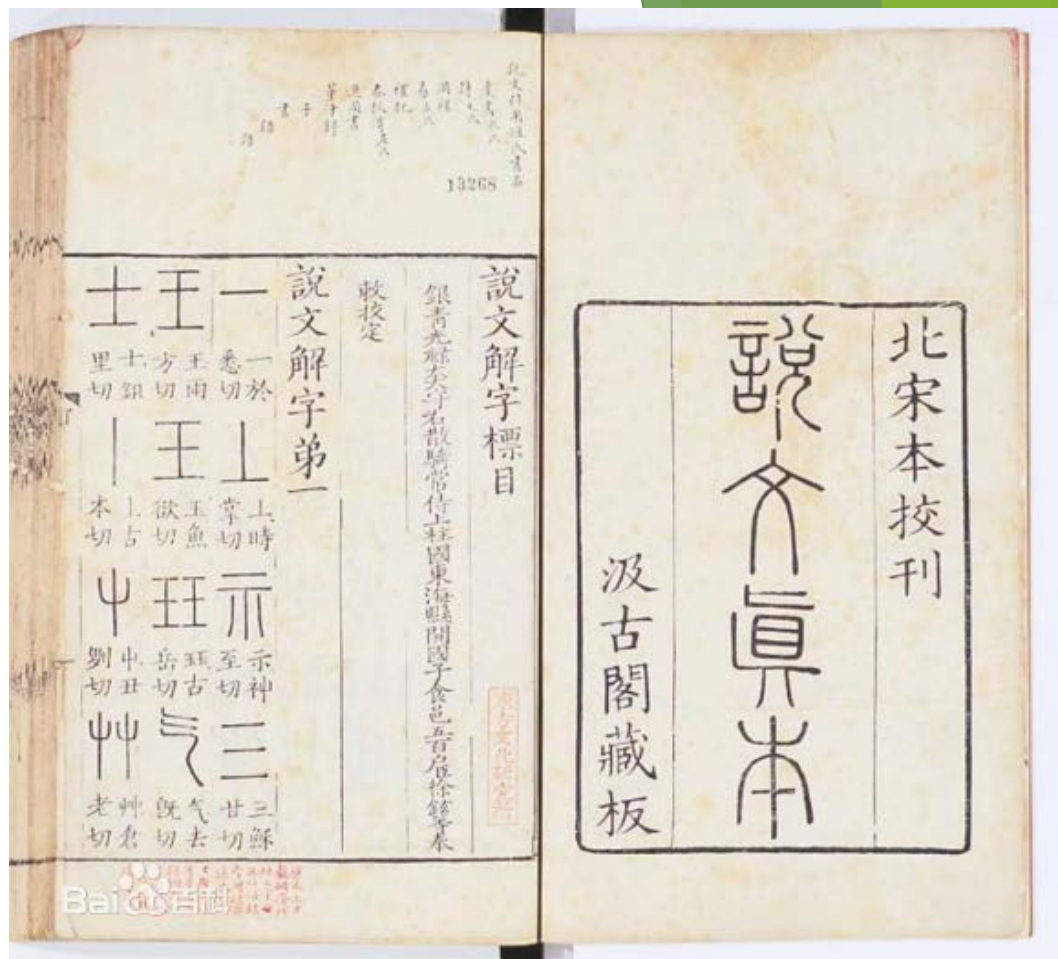 北宋本挍刊
說文眞本
汲古閣藏板
禮記
13268
說文解字標目
東方文化研究所
銀青光祿大夫守右散騎常侍上柱國東海縣開國子食邑五百户臣徐鉉等奉
敕挍定
說文解字弟一
一 一於悉切 丄 丄時掌切 示 示神至切 三 三穌甘切
王 王雨方切 王 玉魚欲切 玨 玨古岳切 气 气去旣切
士 士鉏里切 丨 丨古本切 屮 屮丑列切 艸 艸倉老切
Bai 百科